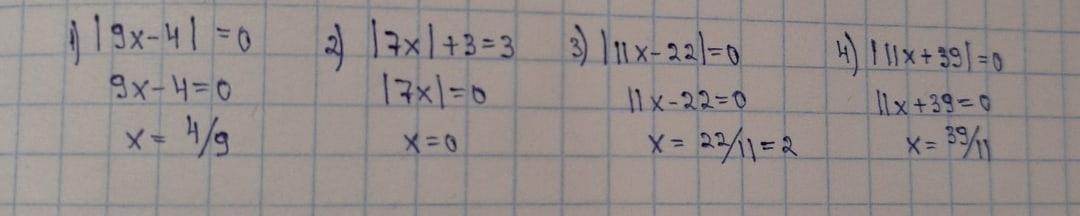 1) |9x-4| = 0
9x-4=0
x = 4/9
2) |7x|+3=3
|7x|=0
x=0
3) |11x-22|=0
11x-22=0
x = 22/11=2
4) |11x+39|=0
11x+39=0
x= 39/11